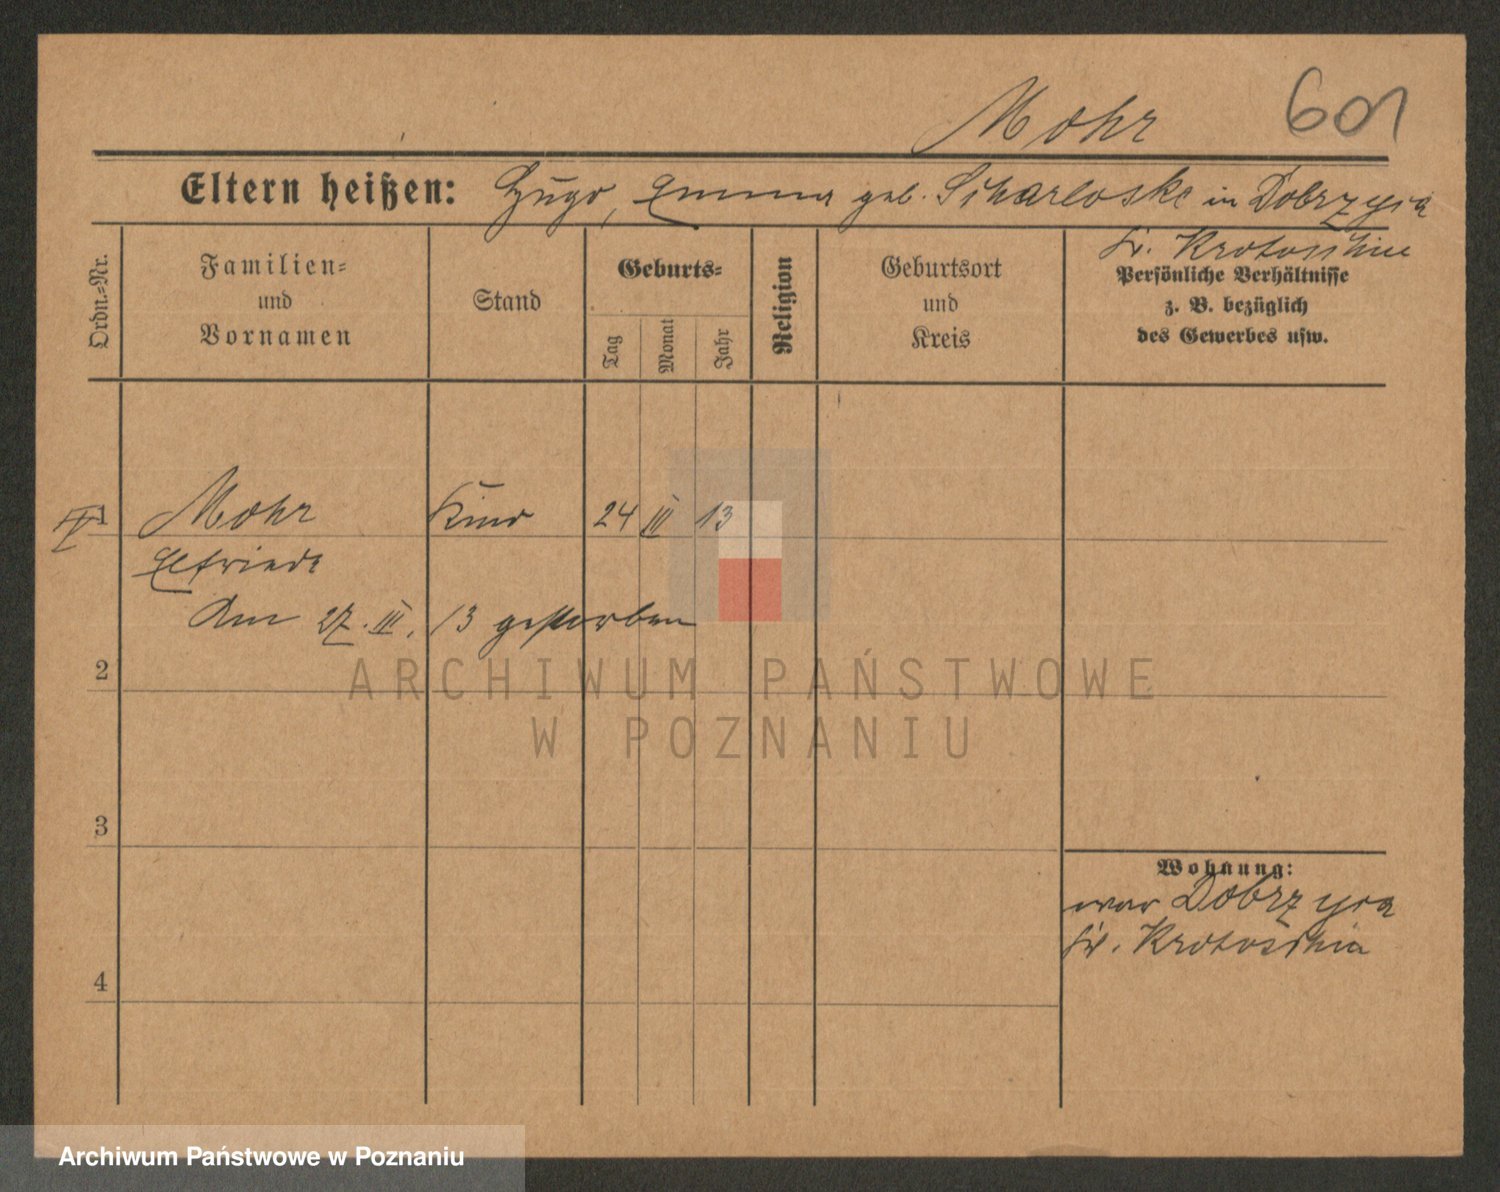 Mohr 601
Eltern heißen: Hugo, Emma geb. Scharloske in Dobrzyca
Kr. Krotoschin
Ordn.-Nr.
Familien-
und
Vornamen
Stand
Geburts-
Tag
Monat
Jahr
Religion
Geburtsort
und
Kreis
Persönliche Verhältnisse
z. B. bezüglich
des Gewerbes usw.
1 Mohr Kind 24 III 13
Elfriede
Am 27. III. 13 gestorben
2
3
4
Wohnung:
Dobrzyca
Kr. Krotoschin
ARCHIWUM PAŃSTWOWE
W POZNANIU
Archiwum Państwowe w Poznaniu